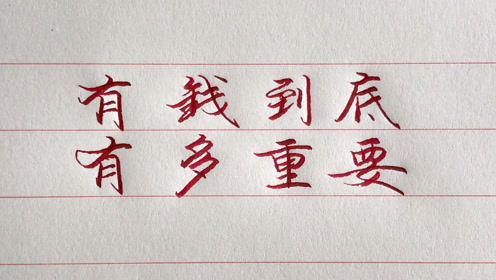 有錢到底
有多重要